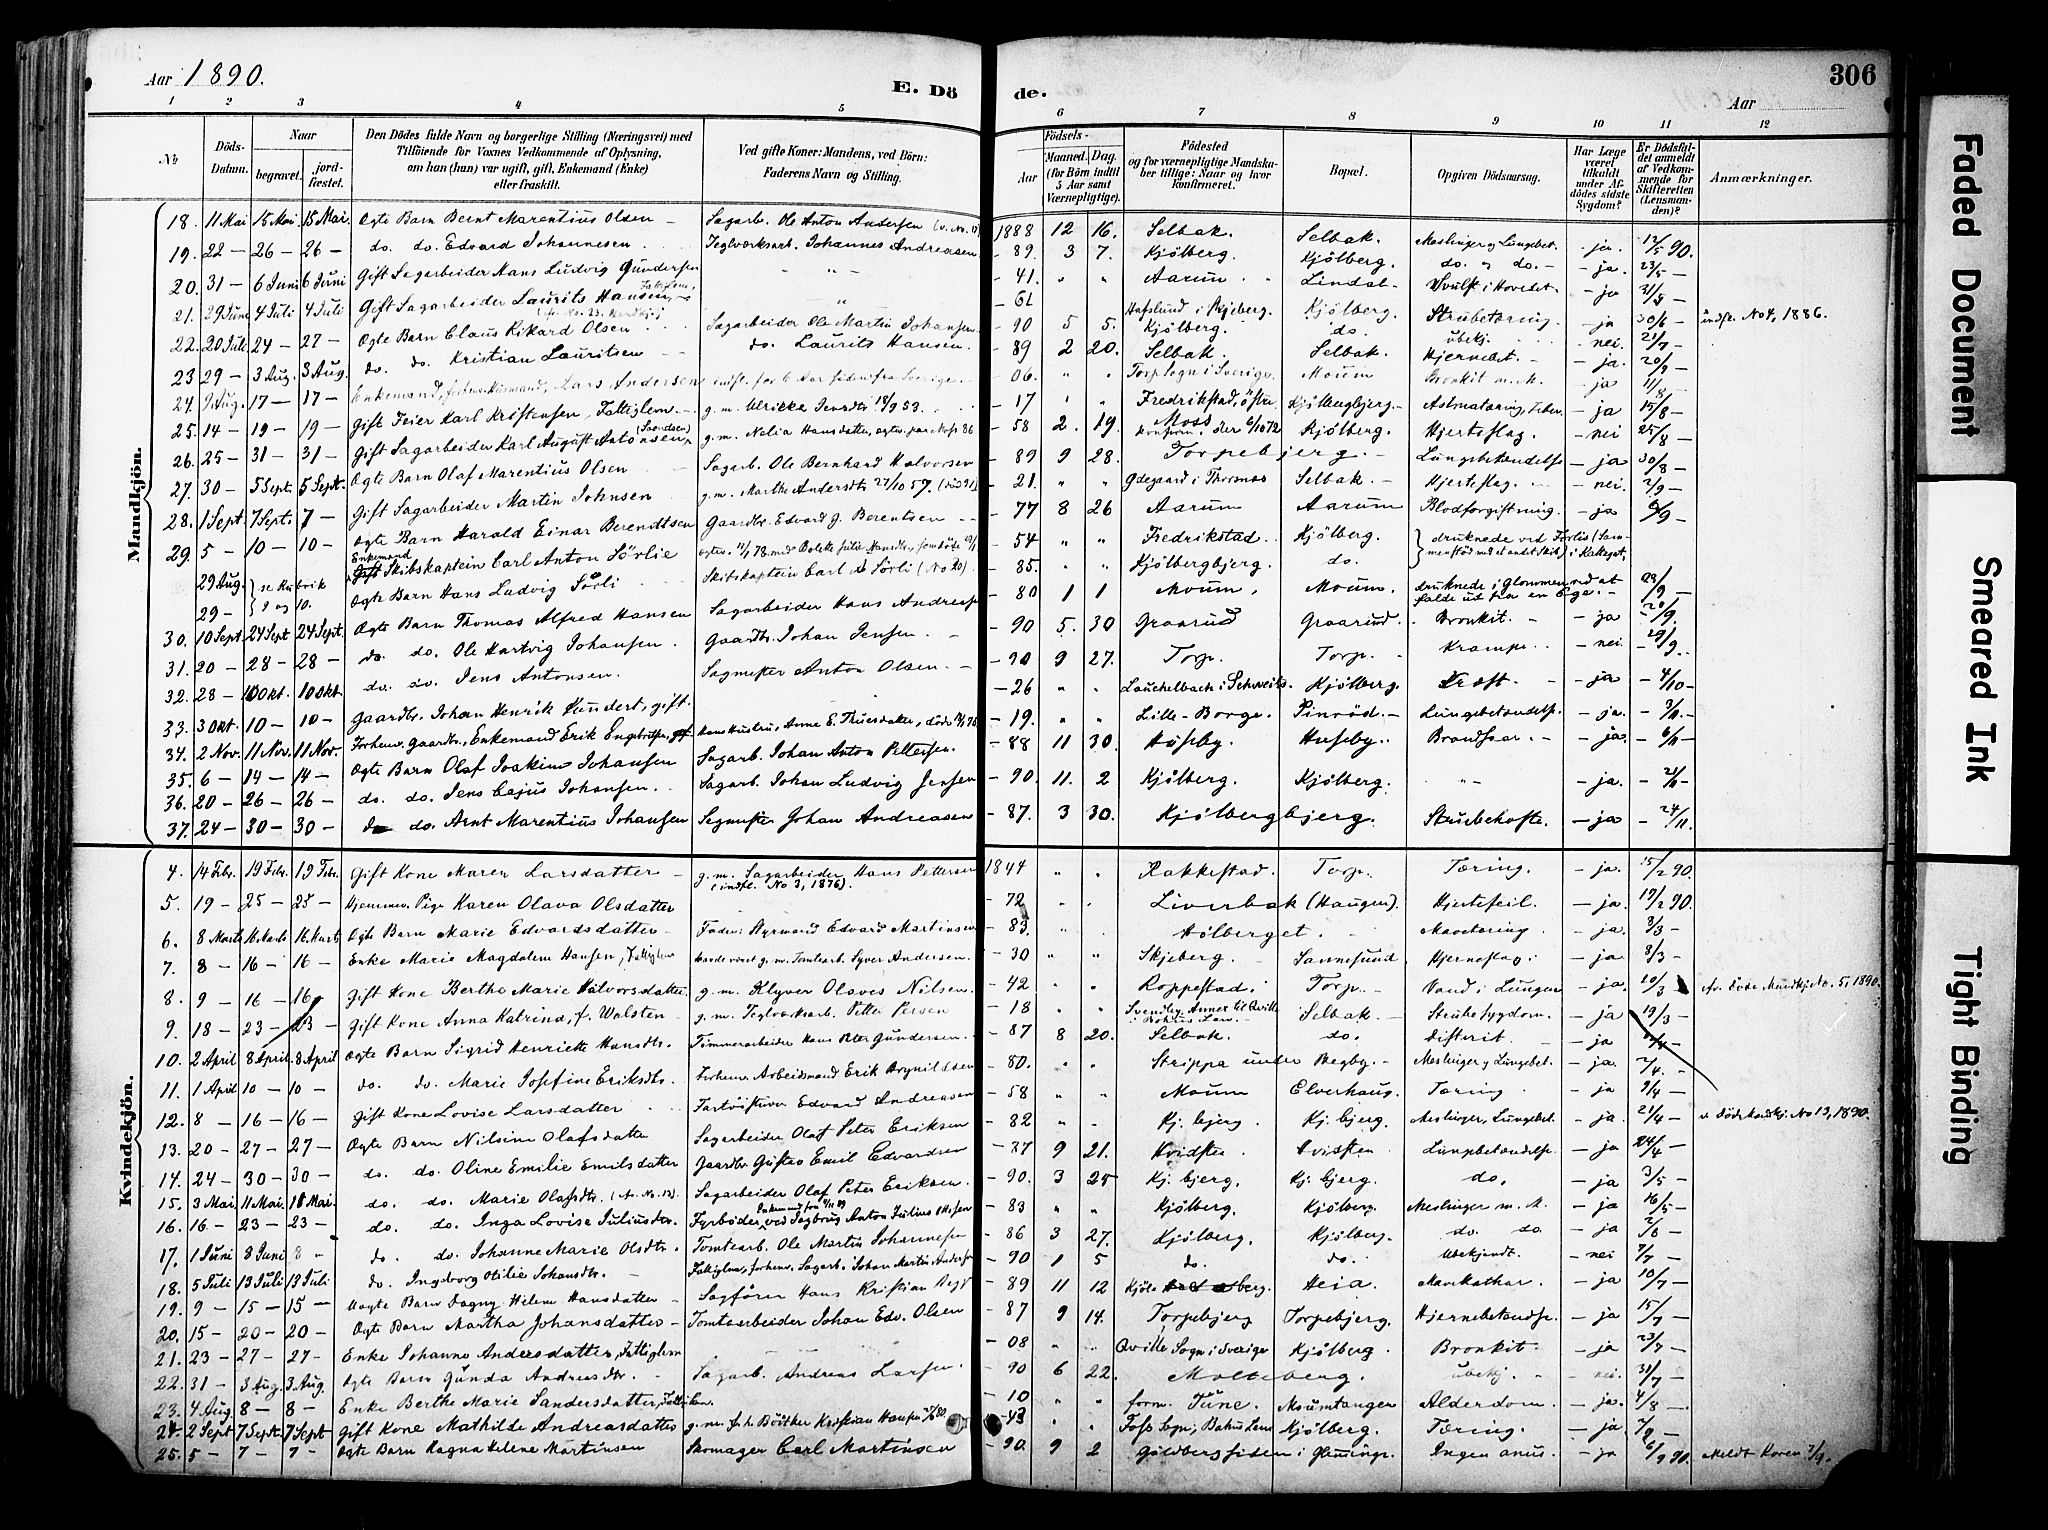 Aar 1890.
E. Dö
de.
306
Aar
1 2 3 4 5 6 7 8 9 10 11 12
No
Döds-Datum.
Naar
begravet.
jord-fæstet.
Den Dödes fulde Navn og borgerlige Stilling (Næringsvei) med Tilföiende for Voxnes Vedkommende af Oplysning, om han (hun) var ugift, gift, Enkemand (Enke) eller fraskilt.
Ved gifte Koner: Mandens, ved Börn: Faderens Navn og Stilling.
Födsels-
Aar
Maaned. Dag.
(for Börn indtil 5 Aar samt Værnepligtige).
Födested og for værnepligtige Mandskaber tillige: Naar og hvor konfirmeret.
Bopæl.
Opgiven Dödsaarsag.
Har Læge været tilkaldt under Afdödes sidste Sygdom?
Er Dödsfaldet anmeldt af Vedkommende for Skifteretten (Lensmanden)?
Anmærkninger.
Mandkjön.
18. 11 Mai 15 Mai 15 Mai. Ægte Barn Bernt Marentius Olsen – Sagarb. Ole Anton Andersen 1888 12 16. Selbak. Selbak. Meslinger og Lungebet. – ja. 12/5 90.
19. 22 – 26 – 26 – do. do. Edvard Johannesen Teglværksarb. Johannes Andreasen – 89. 3 7. Kjölberg. Kjölberg. do. " do. – – ja. 23/5 –
20. 31 – 6 Juni 6 Juni Gift Sagarbeider Hans Ludvig Gundersen – " – – 41. " " Aarum. Lindal. Svulst i Hovedet. – ja
21. 29 Juni 4 Juli 4 Juli Gift Sagarbeider Laurits Hansen, – 61 Hafslund i Skjeberg. Kjölberg. Strubetæring. ja 30/6 – indfl. No 4, 1886.
22. 20 Juli 24 – 27 – Ægte Barn Claus Rikard Olsen Sagarbeider Ole Martin Johansen – 90 5 5. Kjölberg. do. ubekj. – nei. 21/7 –
23 29 – 3 Aug. 3 Aug. do. do. Kristian Lauritsen – do. Laurits Hansen. – 89 2 20. Selbak. Selbak. Hjernebet. – ja.
24. 9 Aug. 17 – 17 – Enkemand, forhenv. Husmand, Lars Andersen indfl. for 6 Aar siden fra Sverige. – 06. " " Torp Sogn i Sverige. Moum Bronkit m. M. – ja 11/8 –
25. 14 – 19 – 19 – Gift Feier Karl Kristensen, Fattiglem. – g. m. Ulrikke Jensdtr – 17 Fredrikstad, östre Kjölbergbjerg. – Astmatæring, – ja 15/8 –
26. 25 – 31 – 31 – Gift Sagarbeider Karl August Antonsen, g. m. Nelia Hansdatter, – 58 2. 19. Moss Kjölberg. Hjerteslag. – nei 25/8 –
27. 30 – 5 Sept. 5 Sept. Ægte Barn Olaf Marentius Olsen Sagarb. Ole Bernhard Halvorsen – 89 9 28. Torpebjerg. – Lungebetændelse – ja 30/8 –
28. 1 Sept. 7 Sept. 7 – Gift Sagarbeider Martin Johnsen g. m. Marthe Andersdtr 27/10 57. – 21. " Ödegaard i Thorsnes Selbak. – Hjerteslag. – nei. 2/9 –
29. 5 – 10 – 10 – Ægte Barn Harald Einar Berendtsen Gaardbr. Edvard G. Berentsen – 77 8 26 Aarum Aarum Blodforgiftning. – ja
29 Aug. se Rubrik Enkemand Gift Skibskaptein Carl Anton Sörlie – 54 " " Fredrikstad. Kjölberg. druknede ved
29 – 9 og 10. Ægte Barn Hans Ludvig Sörli. Skibskaptein Carl A Sörli – 85. " Kjölbergbjerg. do. i Kattegat.
30. 10 Sept. 24 Sept 24 Sept. Ægte Barn Thomas Alfred Hansen Sagarbeider Hans Andreasen – 80 1 1 Moum. Moum. druknede i Glommen ved at falde ud fra en Ege. –
31. 20 – 28 – 28 – do. do. Ole Hartvig Johansen. Gaardbr. Johan Jensen. – – 90 5. 30 Graarud Graarud. Bronkit. – – ja 20/9.
32. 28 – 10 Okt. 10 Okt. do. do. Jens Antonsen. Sagmester Anton Olsen. – – 90 9 27. Torp. Torp. Krampe. – nei. 29/9. –
33. 3 Okt. 10 – 10 – Gaardbr. Johan Henrik Hundert, gift. – 26 " " Lauchelbach i Schweits. Kjölberg. Kræft. – ja 4/10 –
34. 2 Nov. 11 Nov. 11 Nov. Forhenv. Gaardbr. Enkemand Erik Engebretsen, – 19. " " Lille-Borge. Pinröd. – Lungebetændelse. – ja.
35. 6 – 14 – 14 – Ægte Barn Olaf Joakim Johansen Sagarb. Johan Anton Pettersen. – 88 11 30. Huseby. Huseby. Brandsaar. – – ja.
36. 20 – 26 – 26 – do. do. Jens Cajus Johansen. – Sagarb. Johan Ludvig Jensen – 90. 11. 2 Kjölberg. Kjölberg. " – – ja.
37. 24 – 30 – 30 – do. Arnt Marentius Johansen Sagmester Johan Andreasen – 87. 3 30. Kjölbergbjerg. Strubehoste. – ja – 24/11.
Kvindekjön.
4. 14 Febr. 19 Febr. 19 Febr. Gift Kone Maren Larsdatter – g. m. Sagarbeider Hans Pettersen (indfl. No 3, 1876). 1844 " " Rakkestad. Torp. Tæring. – ja. 15/2 90.
5. 19 – 25 – 25 – Hjemmev. Pige Karen Olava Olsdatter – 72 " Liverbak (Haugen). Hjertefeil. – ja. 19/2 90.
6. 8 Marts 16 Marts 16. Marts Ægte Barn Marie Edvardsdatter – Fader: Styrmand Edvard Martinsen – 83. " Hölberget. Mavetæring. – ja. 3/3 –
7. 8 – 16 – 16 – Enke Marie Magdalene Hansen, Fattiglem havde været g. m. Tomtearb. Syver Andersen. – 30 " " Skjeberg. Sannesund. Hjerneslag. – ja 8/3 –
8. 9 – 16 – 16 Gift Kone Berthe Marie Halvorsdatter. g. m. Klyver Olaves Nilsen. – 42 " Roppestad. Torp. – Vand i Lungen – ja. 10/3 Av. Döde Mandkj. No. 5, 1890.
9. 18 – 23 – 23 – Gift Kone Anna Katrina, f. Walsten – g. m. Teglværksarb. Petter Persen – 18 " Selbak. – Strubesygdom. – ja 19/3 –
10. 2 April 8 April. 8 April Ægte Barn Sigrid Henriette Hansdtr. Tømmerarbeider Hans Petter Gundersen. – 87 8 20. Selbak. do. Difterit. – ja
11. 1 April 10 – 10 – do. do. Marie Josefine Eriksdtr. Forhenv. Arbeidsmand Erik Brynildsen – 80. " Strippa under Begby. – Meslinger og Lungebet. – ja. 2/4. –
12. 8 – 16 – 16 – Gift Kone Lovise Larsdatter Edvard Andreasen – 58 " " Moum Elverhaug. Tæring – ja 9/4 –
13. 20 – 27 – 27 – Ægte Barn Nilsine Olafsdatter Sagarbeider Olaf Peter Eriksen – 82 " Kj. bjerg. Kj. bjerg. Meslinger, Lungebet. – ja. 21/4 – v. Döde Kvindkj. No 13, 1890.
14. 24 – 30 – 30 – do. do. Oline Emilie Emilsdatter Gaardbr. Gustav Emil Edvardsen – 87 9 21. Hvidsten. Hvidsten. Lungebetændelse. – ja 24/4
15. 3 Mai 11 Mai. 18 Mai. do. do. Marie Olafsdtr. Sagarbeider Olaf Peter Eriksen. – 90. 3 25 Kj. bjerg. Kj. bjerg. do. – ja 3/5 –
16. 16 – 23 – 23 – do. do. Inga Lovise Juliusdtr. Fyrböder ved Sagbrug Anton Julius Olsen – 83 " " Kjölberg. Kjölberg. Meslinger m. M. – ja 16/5 –
17. 1 Juni 8 Juni 8 " do. do. Johanne Marie Olsdtr. Tomtearb. Ole Martin Johannesen – 86 3 27. Kjölberg. Kjölberg. do. do – ja 2/6 –
18. 5 Juli 13 Juli 13 Juli do. Ingeborg Otilie Johansdtr. – Fattiglem, forhenv. Sagarb. Johan Martin Andersen – 90 1 5 do. do. Ubekjendt. – nei 7/7 –
19. 9 – 15 – 15 – Uægte Barn Dagny Helene Hansdatter – Sagfører Hans Kristian – 89 11 12 Kjölberg. Heia. Mavekathar. – ja 10/7 –
20. 15 – 20 – 20 – Ægte Barn Martha Johansdatter – Tomtearbeider Johan Edv. Olsen – 87 9 14. Torpebjerg Torpebjerg. Hjernebetændelse. – ja 15/7 –
21. 23 – 27 – 27 – Enke Johanne Andersdatter, Fattiglem – 08 " " Qville Sogn i Sverige Kjölberg. Bronkit. – ja 23/7 –
22. 31 – 3 Aug. 3 Aug. Ægte Barn Gunda Andreasdtr. – Sagarb. Andreas Larsen. – 90 6 22. Molteberg. ubekj. – nei. 31/7 –
23. 4 Aug. 8 – 8 – Enke Berthe Marie Sandersdatter, Fattiglem. – 10 " form. Tune. Moumtangen Alderdom. – ja. 4/8 –
24. 2 Sept 7 Sept. 7 Sept Gift Kone Mathilde Andreasdatter g. m. fh. Bödker Kristian Hansen – 43 Foss Sogn, Bahus Len Kjölberg. Tæring. – ja.
25. 5 – 7 – 7 – Ægte Barn Ragna Helene Martinsen Skomager Carl Martinsen – 90. 9 2 Guldbergsiden i Glemminge. Ingen anus. – ja 6/9 90. Meldt Koren 7/9.
Faded Document
Smeared Ink
Tight Binding